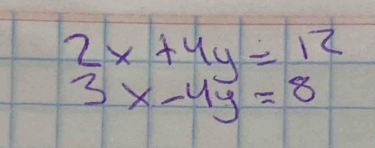 2x + 4y = 12
3x - 4y = 8